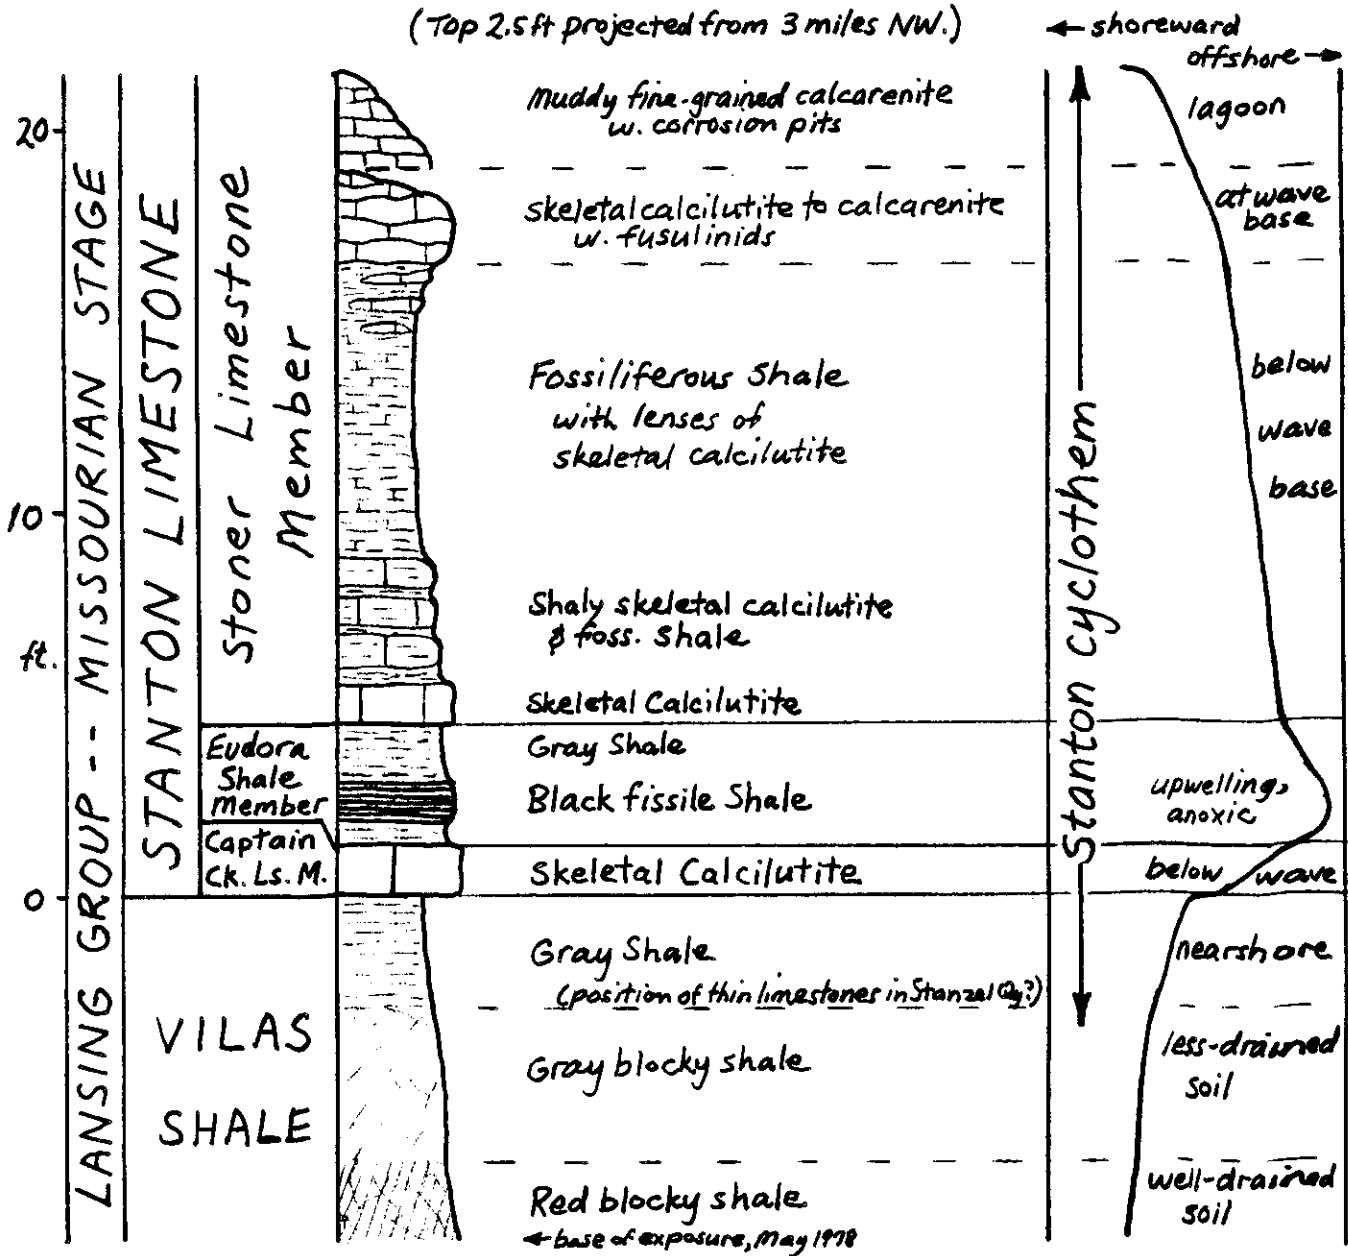 (Top 2.5ft projected from 3 miles NW.)
← shoreward
offshore →
20
10
ft.
0
LANSING GROUP -- MISSOURIAN STAGE
STANTON LIMESTONE
Stoner Limestone
Member
Eudora
Shale
Member
Captain
Ck. Ls. M.
VILAS
SHALE
Muddy fine-grained calcarenite
w. corrosion pits
Skeletal calcilutite to calcarenite
w. fusulinids
Fossiliferous Shale
with lenses of
skeletal calcilutite
Shaly skeletal calcilutite
& foss. shale
Skeletal Calcilutite
Gray Shale
Black fissile Shale
Skeletal Calcilutite
Gray Shale
(position of thin limestones in Stanzel Qy?)
Gray blocky shale
Red blocky shale
← base of exposure, May 1978
Stanton cyclothem
lagoon
at wave
base
below
wave
base
upwelling,
anoxic
below wave
nearshore
less-drained
soil
well-drained
soil